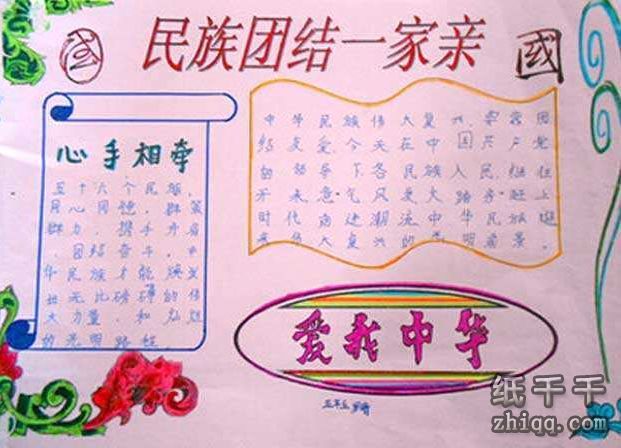 国
民族团结一家亲
國
心手相牵
五十六个民族，
同心同德，群策
群力，携手并肩
，团结奋斗，中
华民族才能焕发
出无比磅礴的伟
大力量，和灿烂
的光明路程。
中华民族伟大复兴，需要团
结友爱，今天在中国共产党
的领导下各民族人民，继往
开来意气风发大踏步赶上
时代前进潮流中华民族迎
来伟大复兴的光明前景。
爱我中华
五年五
纸千千
zhiqq.com